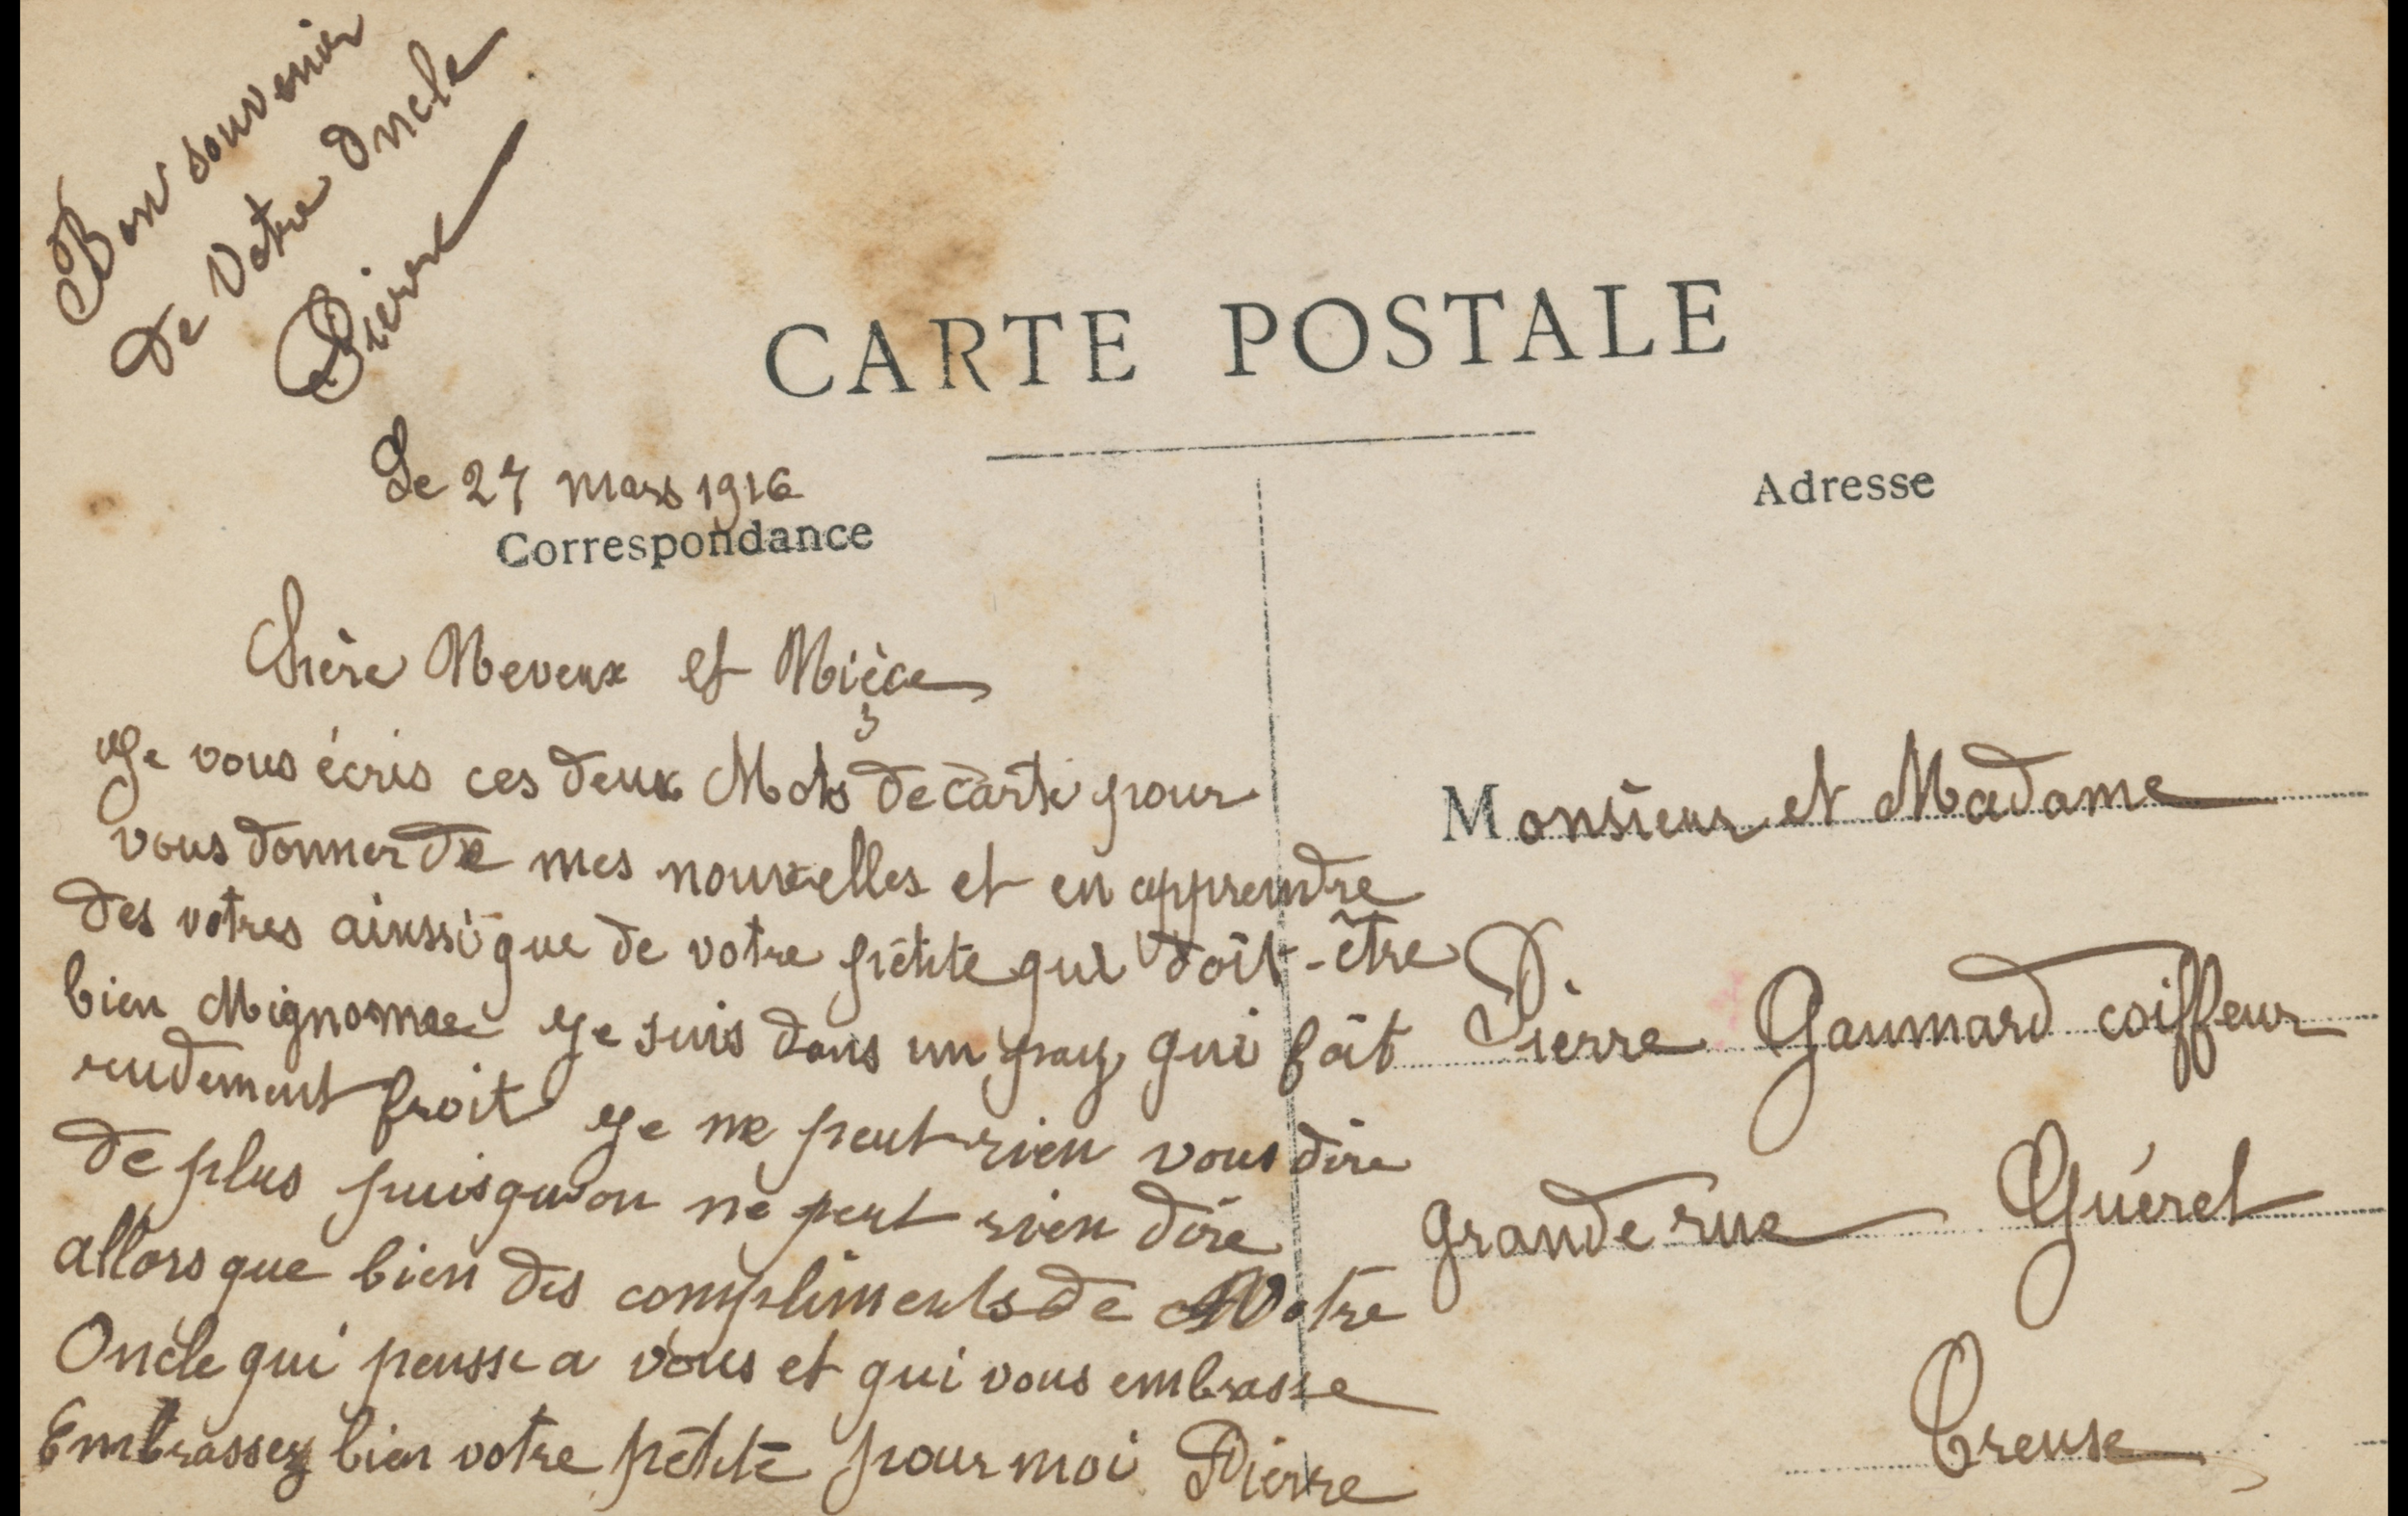 Bon souvenir
de votre Oncle
Pierre
CARTE POSTALE
Le 27 mars 1916
Correspondance
Adresse
Chère Neveux et Nièce
Je vous écris ces deux Mots de carte pour
vous donner de mes nouvelles et en apprendre
des votres ainssi que de votre pétite qui doit-être
bien Mignonne Je suis dans un pay qui fait
rudement froit Je ne peut rien vous dire
de plus puisqu'on ne peut rien dire
allors que bien des compliments de Votre
Oncle qui pensse a vous et qui vous embrasse
Embrassez bien votre pétite pour moi Pierre
Monsieur et Madame
Pierre Gaumard coiffeur
grande rue Guéret
Creuse